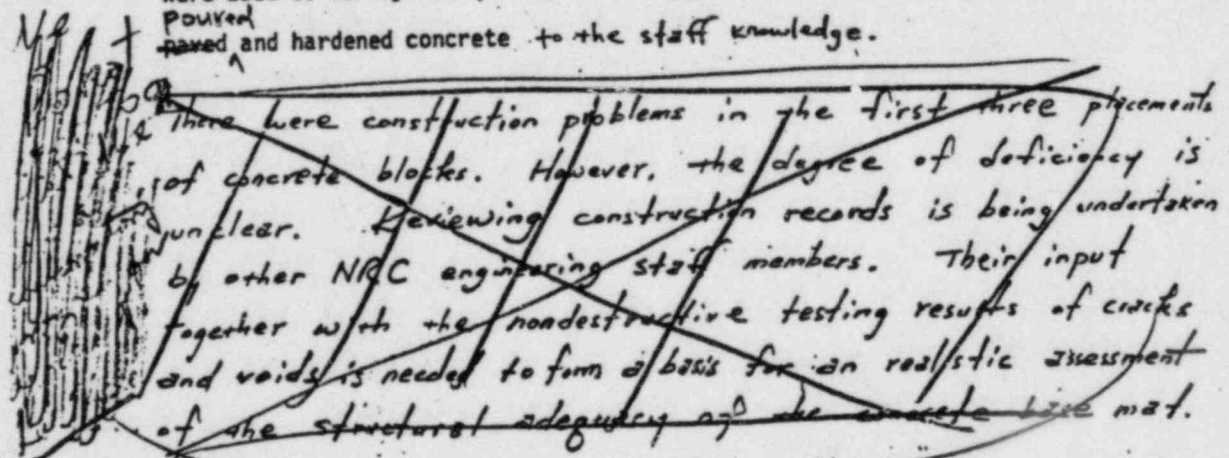 poured
paved and hardened concrete to the staff knowledge.
There were construction problems in the first three placements
of concrete blocks. However, the degree of deficiency is
unclear. Reviewing construction records is being undertaken
by other NRC engineering staff members. Their input
together with the nondestructive testing results of cracks
and voids is needed to form a basis for an realistic assessment
of the structural adequacy of the concrete base mat.